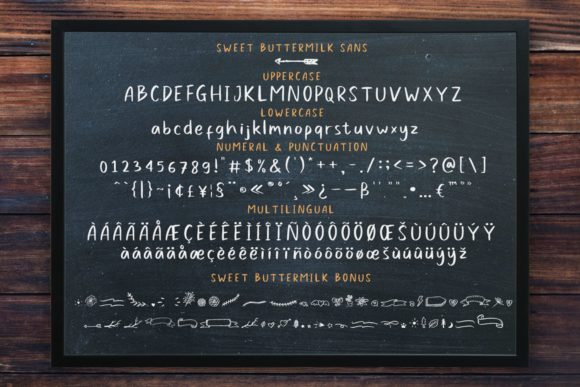 SWEET BUTTERMILK SANS
UPPERCASE
ABCDEFGHIJKLMNOPQRSTUVWXYZ
LOWERCASE
abcdefghijklmnopqrstuvwxyz
NUMERAL & PUNCTUATION
0123456789!"#$%&(')*++,-./:;<=>?@[\]
^¨`{|}~¡¢£¥¦§¨¨©«®°´¸»¿––ß
MULTILINGUAL
ÀÁÂÃÄÅÆÇÈÉÊËÌÍÎÏÑÒÓÔÕÖØŒŠÙÚÛÜŸÝ
àáâãäåæçèéêëìíîïñòóôõöøœšùúûüýÿž
SWEET BUTTERMILK BONUS